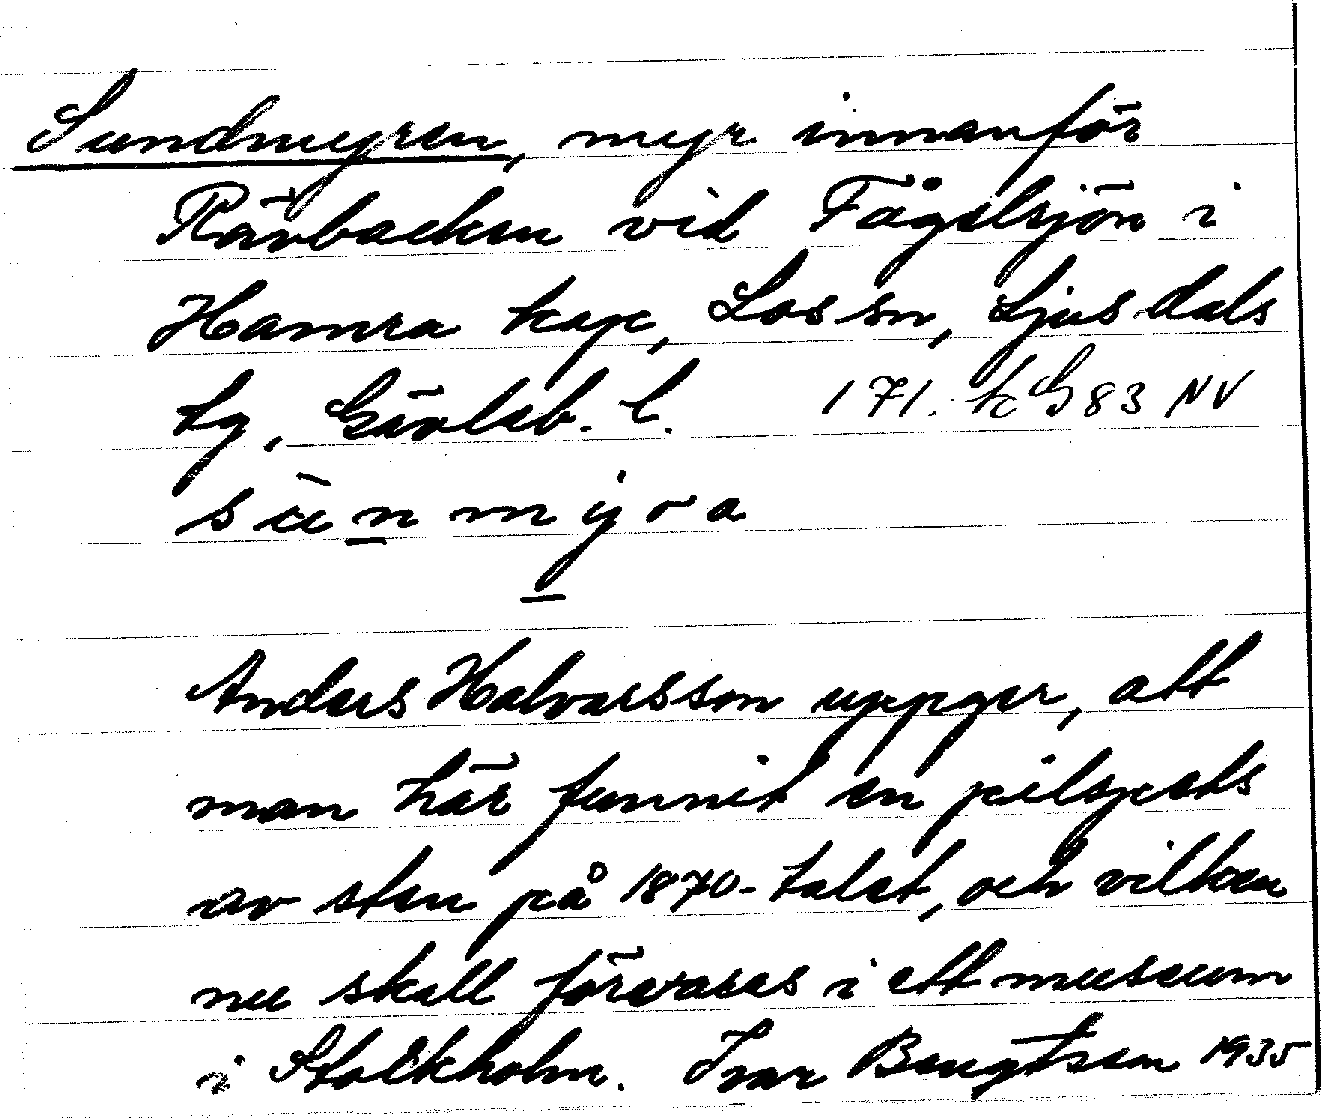 Sundmyren, myr innanför
Rävbacken vid Fågelsjön i
Hamra kap, Los sn, Ljusdals
tg, Gävleb. l. 171. tcG 83 NV
sùn myra
Anders Halvarsson uppger, att
man här funnit en pilspets
av sten på 1870-talet, och vilken
nu skall förvaras i ett museum
i Stockholm. Ivar Bengtsson 1935